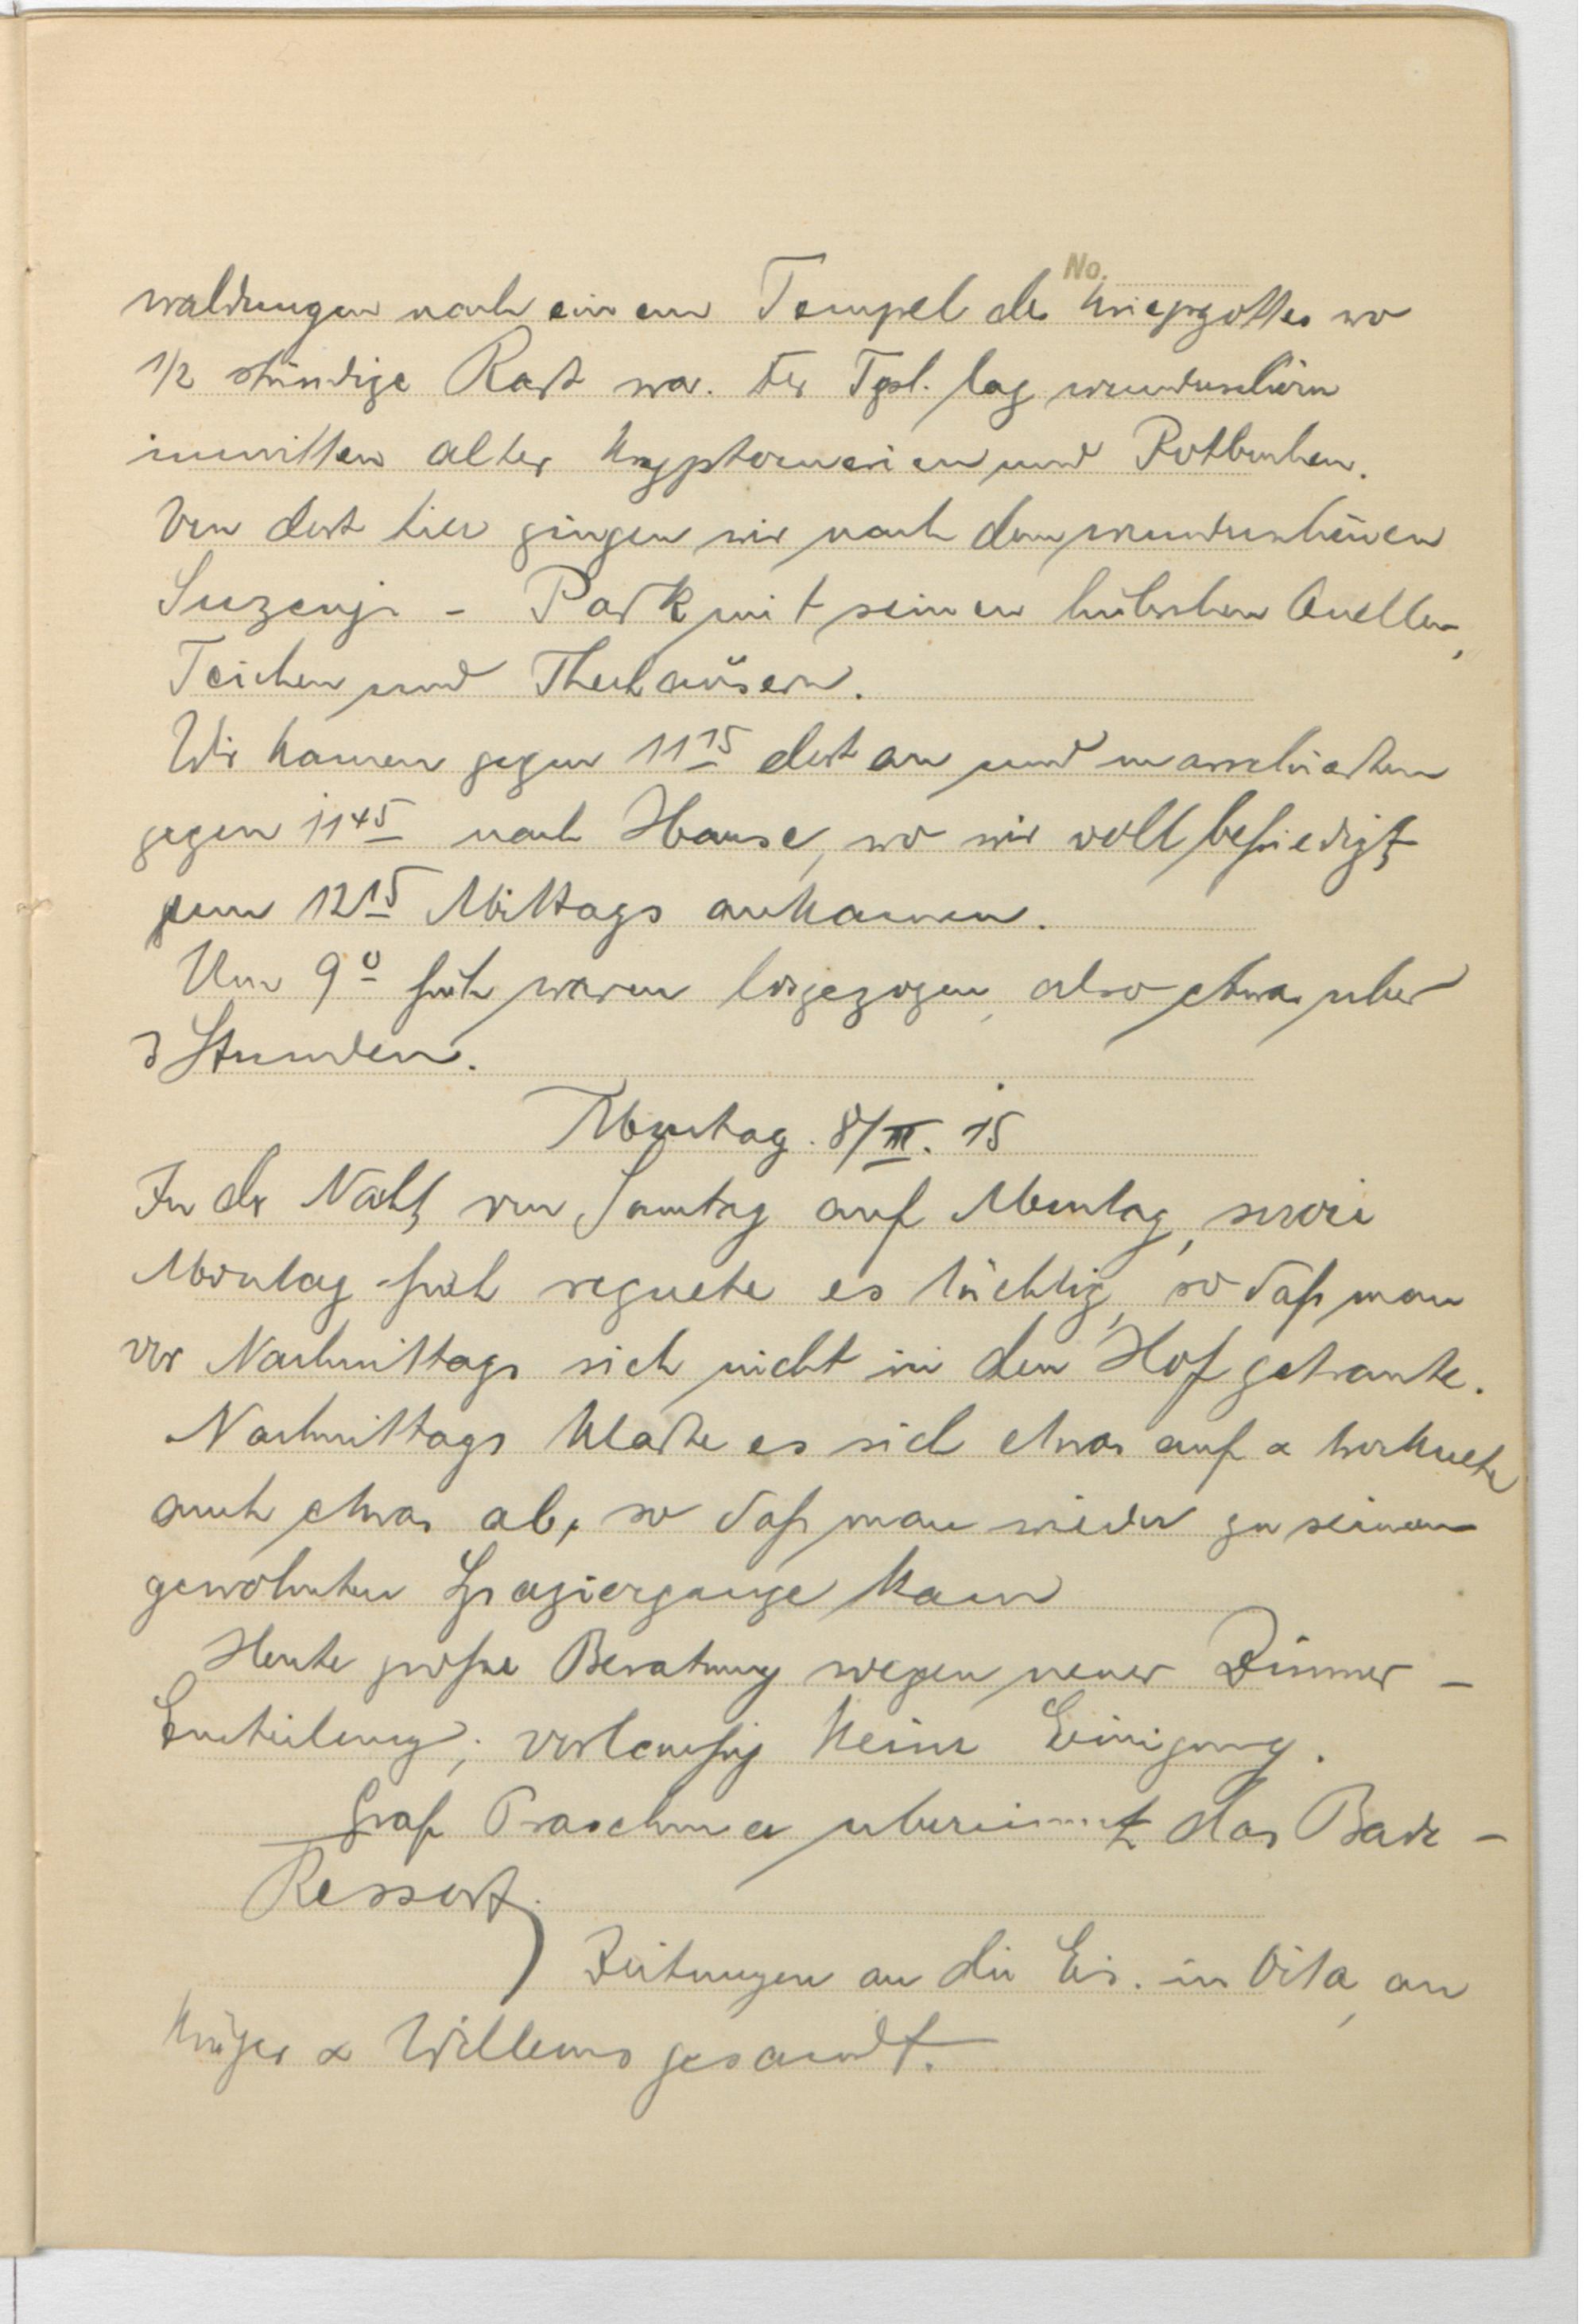 No.
waldungen nach einem Tempel des Kriegsgottes wo
1/2 stündige Rast war. Der Tpl. lag wunderschön
inmitten alter Kryptomerien und Rotbuchen.
Von dort hier gingen wir nach dem wunderschönen
Suzenji - Park mit seinen hübschen Quellen,
Teichen und Theehäusern.
Wir kamen gegen 11 15 dort an und marschierten
gegen 11 45 nach Hause, wo wir voll befriedigt
12 15 Mittags ankamen.
Um 9 0 früh waren losgezogen, also etwas über
3 Stunden.
Montag. 8/III. 15
In der Nacht von Sonntag auf Montag, sowie
Montag früh regnete es tüchtig, so daß man
vor Nachmittags sich nicht in den Hof getraute.
Nachmittags klarte es sich etwas auf & trocknete
auch etwas ab, so daß man wieder zu seinem
gewohnten Spaziergange kam
Heute große Beratung wegen neuer Zimmer -
Einteilung; vorlaeufig keine Einigung.
Graf Praschma übernimmt das Bade -
Ressort.
Zeitungen an die in Oita, an
Krüger & Willems gesandt.